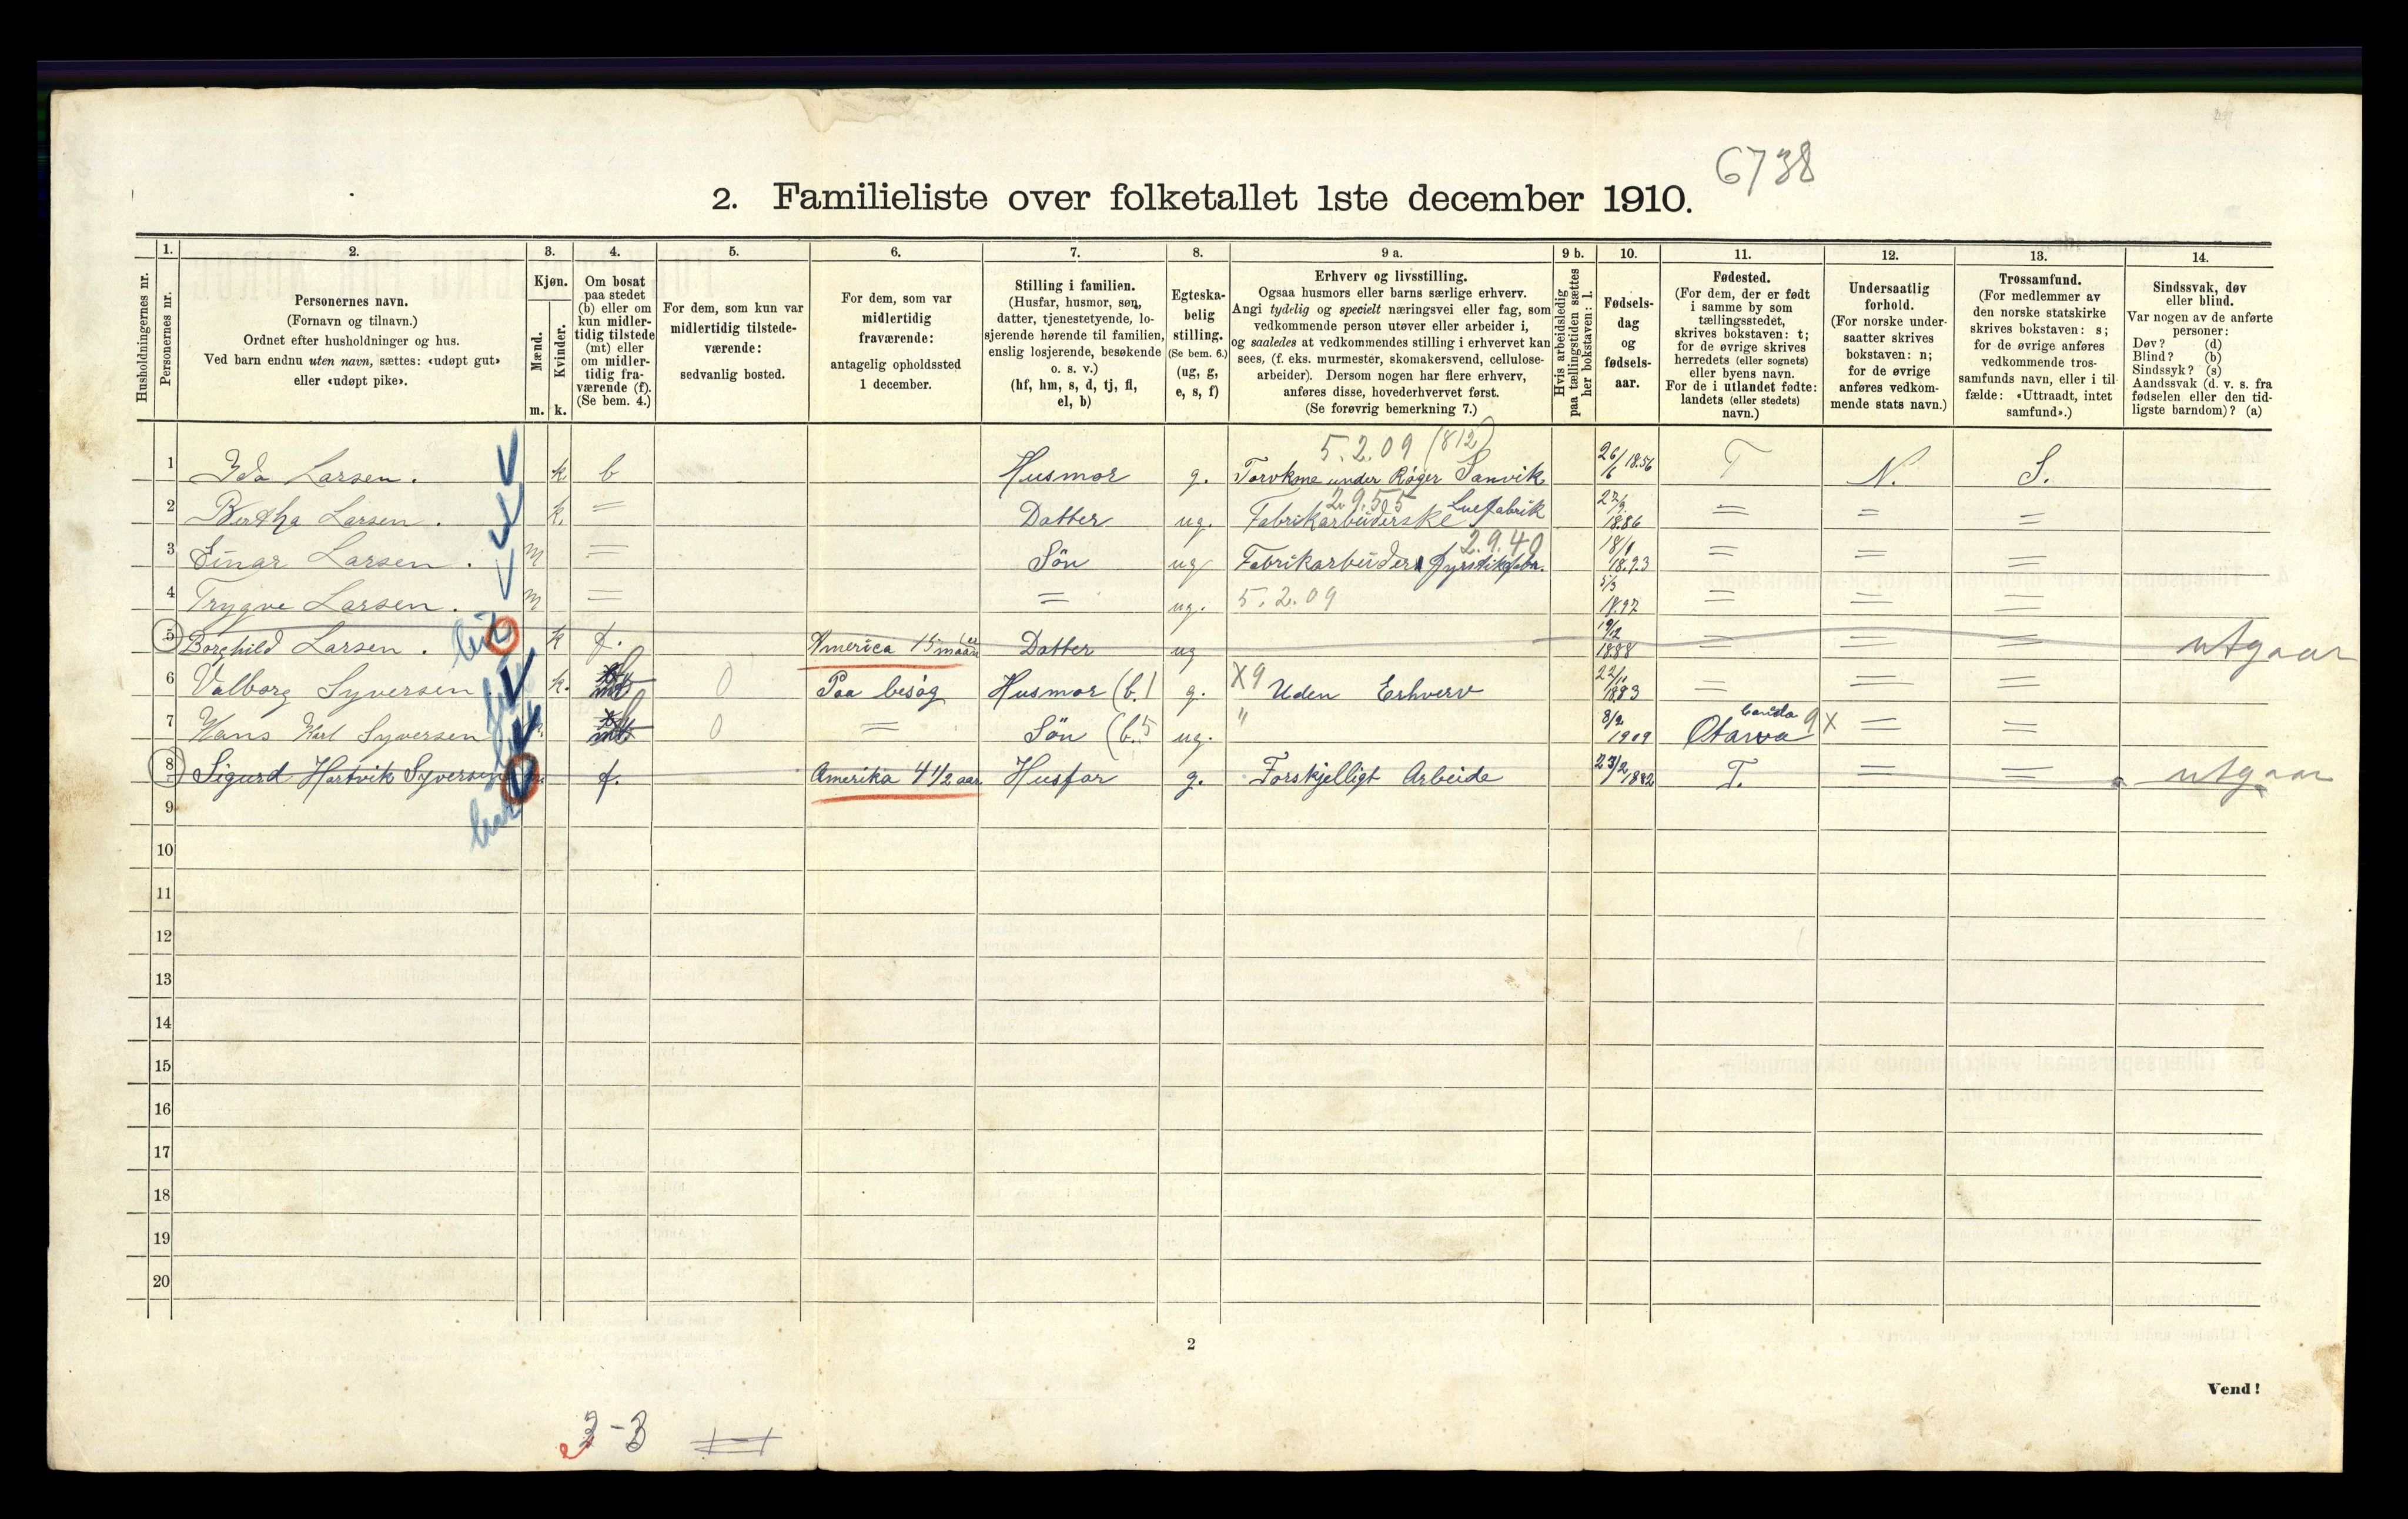 6738
2. Familieliste over folketallet 1ste december 1910.
Husholdningernes nr.
1. Personernes nr.
2. Personernes navn.
(Fornavn og tilnavn.)
Ordnet efter husholdninger og hus.
Ved barn endnu uten navn, sættes: «udøpt gut»
eller «udøpt pike».
3. Kjøn.
Mænd. m.
Kvinder. k.
4. Om bosat
paa stedet
(b) eller om
kun midler-
tidig tilstede
(mt) eller
om midler-
tidig fra-
værende (f).
(Se bem. 4.)
5. For dem, som kun var
midlertidig tilstede-
værende:
sedvanlig bosted.
6. For dem, som var
midlertidig
fraværende:
antagelig opholdssted
1 december.
7. Stilling i familien.
(Husfar, husmor, søn,
datter, tjenestetyende, lo-
sjerende hørende til familien,
enslig losjerende, besøkende
o. s. v.)
(hf, hm, s, d, tj, fl,
el, b)
8. Egteska-
belig
stilling.
(Se bem. 6.)
(ug, g,
e, s, f)
9 a. Erhverv og livsstilling.
Ogsaa husmors eller barns særlige erhverv.
Angi tydelig og specielt næringsvei eller fag, som
vedkommende person utøver eller arbeider i,
og saaledes at vedkommendes stilling i erhvervet kan
sees, (f. eks. murmester, skomakersvend, cellulose-
arbeider). Dersom nogen har flere erhverv,
anføres disse, hovederhvervet først.
(Se forøvrig bemerkning 7.)
9 b. Hvis arbeidsledig
paa tællingstiden sættes
her bokstaven: l.
10. Fødsels-
dag
og
fødsels-
aar.
11. Fødested.
(For dem, der er født
i samme by som
tællingsstedet,
skrives bokstaven: t;
for de øvrige skrives
herredets (eller sognets)
eller byens navn.
For de i utlandet fødte:
landets (eller stedets)
navn.)
12. Undersaatlig
forhold.
(For norske under-
saatter skrives
bokstaven: n;
for de øvrige
anføres vedkom-
mende stats navn.)
13. Trossamfund.
(For medlemmer av
den norske statskirke
skrives bokstaven: s;
for de øvrige anføres
vedkommende tros-
samfunds navn, eller i til-
fælde: «Uttraadt, intet
samfund».)
14. Sindssvak, døv
eller blind.
Var nogen av de anførte
personer:
Døv? (d)
Blind? (b)
Sindssyk? (s)
Aandssvak (d. v. s. fra
fødselen eller den tid-
ligste barndom)? (a)
5.2.09 (812)
1 Ida Larsen. k b Husmor g. Torvkone under Røger Sanvik 26/6 1856 T N. S.
2.9.55
2 Bertha Larsen. k. = Datter ug. Fabrikarbeiderske Luefabrik 27/9 1886 = = =
2.9.40
3 Einar Larsen. m = Søn ug Fabrikarbeider Fyrstikfabr. 18/1 1893 = = =
4 Trygve Larsen. m = = ug. 5.2.09 5/3 1897 = = =
5 Borghild Larsen. k f. America 15 maan Datter ug 19/2 1888 = = = utgaar
6 Valborg Syversen k. mt 0 Paa besøg Husmor (b.) g. X9 Uden Erhverv 22/11 1883 = = =
7 Hans Karl Syversen mt 0 = Søn (b.5 ug. " 8/2 1909 Otawa Canada 9X = =
8 Sigurd Hartvik Syversen m. f. Amerika 4 1/2 aar Husfar g. Forskjelligt Arbeide 23/2 1882 T. = = utgaar
9
10
11
12
13
14
15
16
17
18
19
20
2
Vend!
3-3